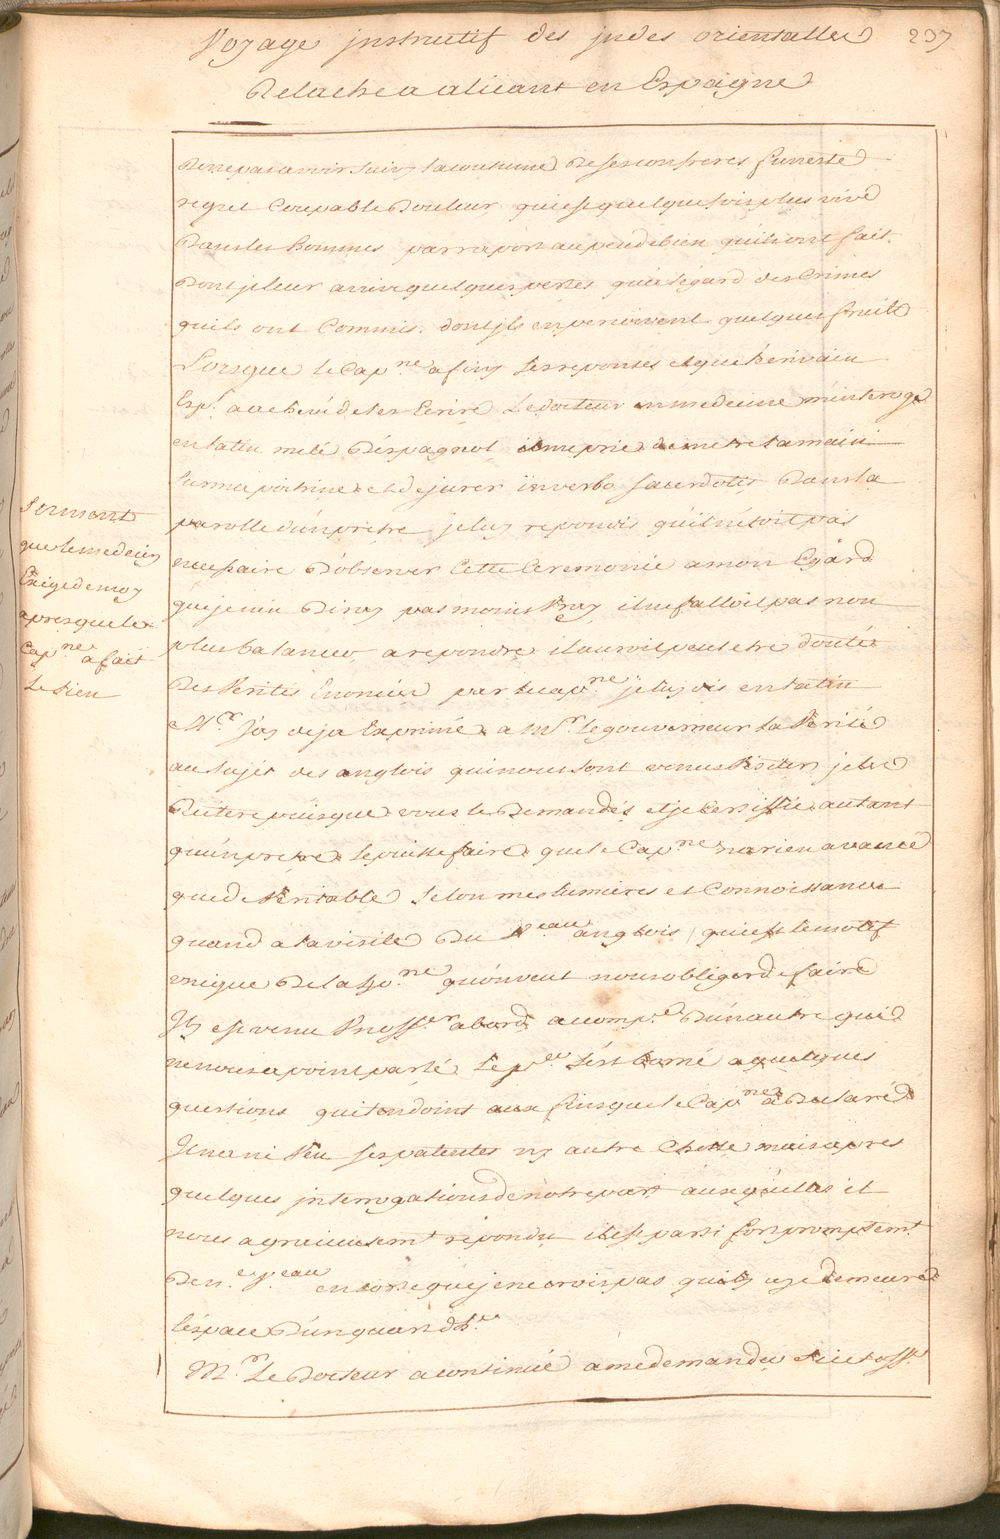 Voyage jnstructif des jndes orientalles 237
Relache a alicant en Espagne
Dene pas avoir suivy la coutume de ses confreres funeste
regret Coupable Douleur qui est quelque fois plus vive
Dans les hommes par raport au peu de bien quils ont fait.
Dont jl leur arrive quelques pertes qu'a legard des Crimes
quils ont Commis. dont jls en percoivent quelques fruits
Lorsque le Cap.ne a finy ses reponses et que l'ecrivain
Esp.l acchevé de les Ecrire Le docteur en medecine m'interoge
en latin melé D'espagnol il me prie de metre la main
sur ma poitrine et de jurer in verbo sacerdotis Dans la
parolle d'un pretre je luy repondis qu'il n'étoit pas
necessaire D'observer Cette Ceremonie a mon Egard
que je n'en Diray pas moins Vray il ne falloit pas non
plus balancer a repondre il auroit peut etre douté
Des Verités Enoncées par le cap.ne je luy dis en latin
M.r J'ay deja Exprimé a M.r le gouverneur la Verité
au sujet des anglois qui nous sont venus Visiter je la
Reitere puisque vous le Demandés et je Certiffie autant
qu'un pretre le puisse faire que le Cap.ne n'a rien avancé
que de Veritable selon mes lumieres et Connoissances
quand a la visite Du V.eau anglois qui est le motif
unique De la 40.ne qu'on veut nous obliger de faire
Jl est venu 1 noff.er abord acomp.é D'un autre qui
ne nous a point parlé Le p.er s'est borné a quelques
questions qui tendoint aux fins que le Cap.ne a Declaré
Jl n'a ni Veu ses patentes ny autre Chose mais apres
quelques jnterrogations de notre part auxquelles il
nous a gracieusem.t repondu il est parti fort promptem.t
De n.e V.eau en sorte que je ne crois pas quil y aye demeuré
l'éspace D'un quard d'h.re
M.r Le Docteur a continué a me demander si cet off.r
Serment
que le medecin
Exige de moy
apres que le
Cap.ne a fait
le sien